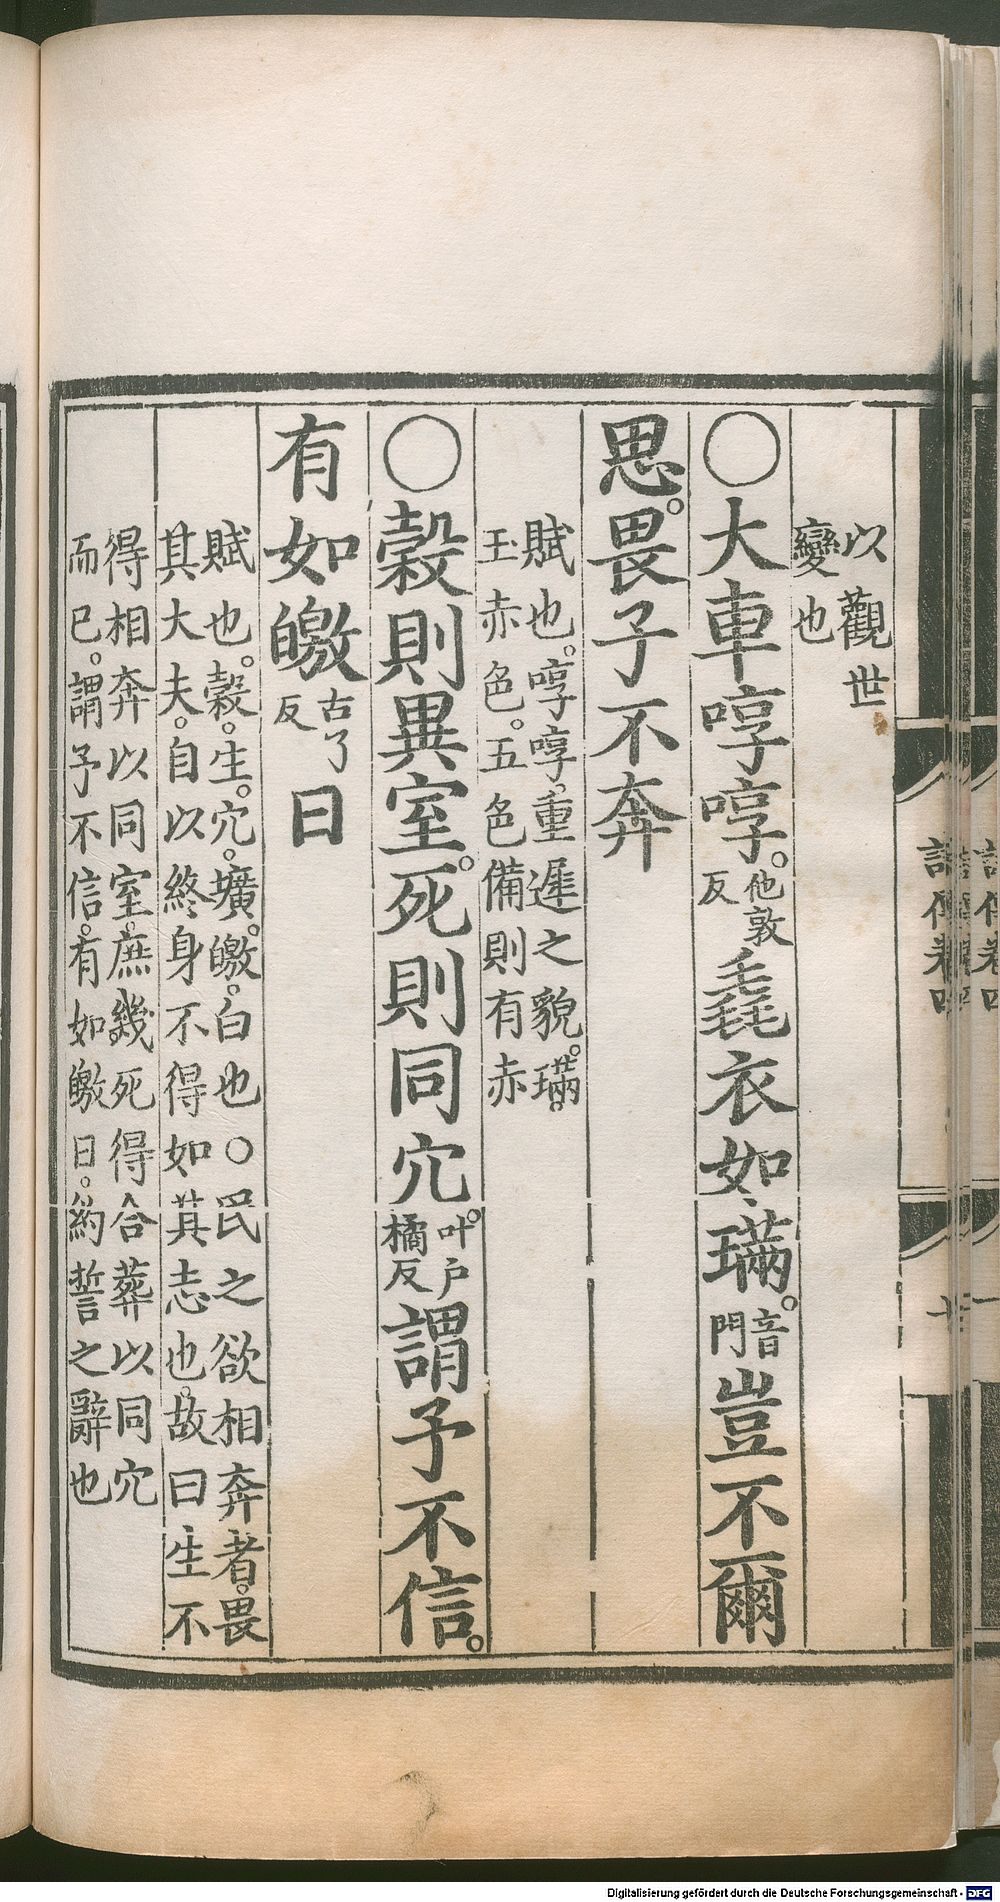 以觀世
變也
○大車哼哼。他敦反毳衣如璊。音門豈不爾
思。畏子不奔
賦也。哼哼。重遲之貌。璊。
玉赤色。五色備則有赤
○穀則異室。死則同穴。叶戶橘反謂予不信。
有如皦古了反日
賦也。穀。生。穴。壙。皦。白也○民之欲相奔者。畏
其大夫。自以終身不得如其志也。故曰生不
得相奔以同室。庶幾死得合葬以同穴
而已。謂予不信。有如皦日。約誓之辭也
詩傳卷四
Digitalisierung gefördert durch die Deutsche Forschungsgemeinschaft - DFG